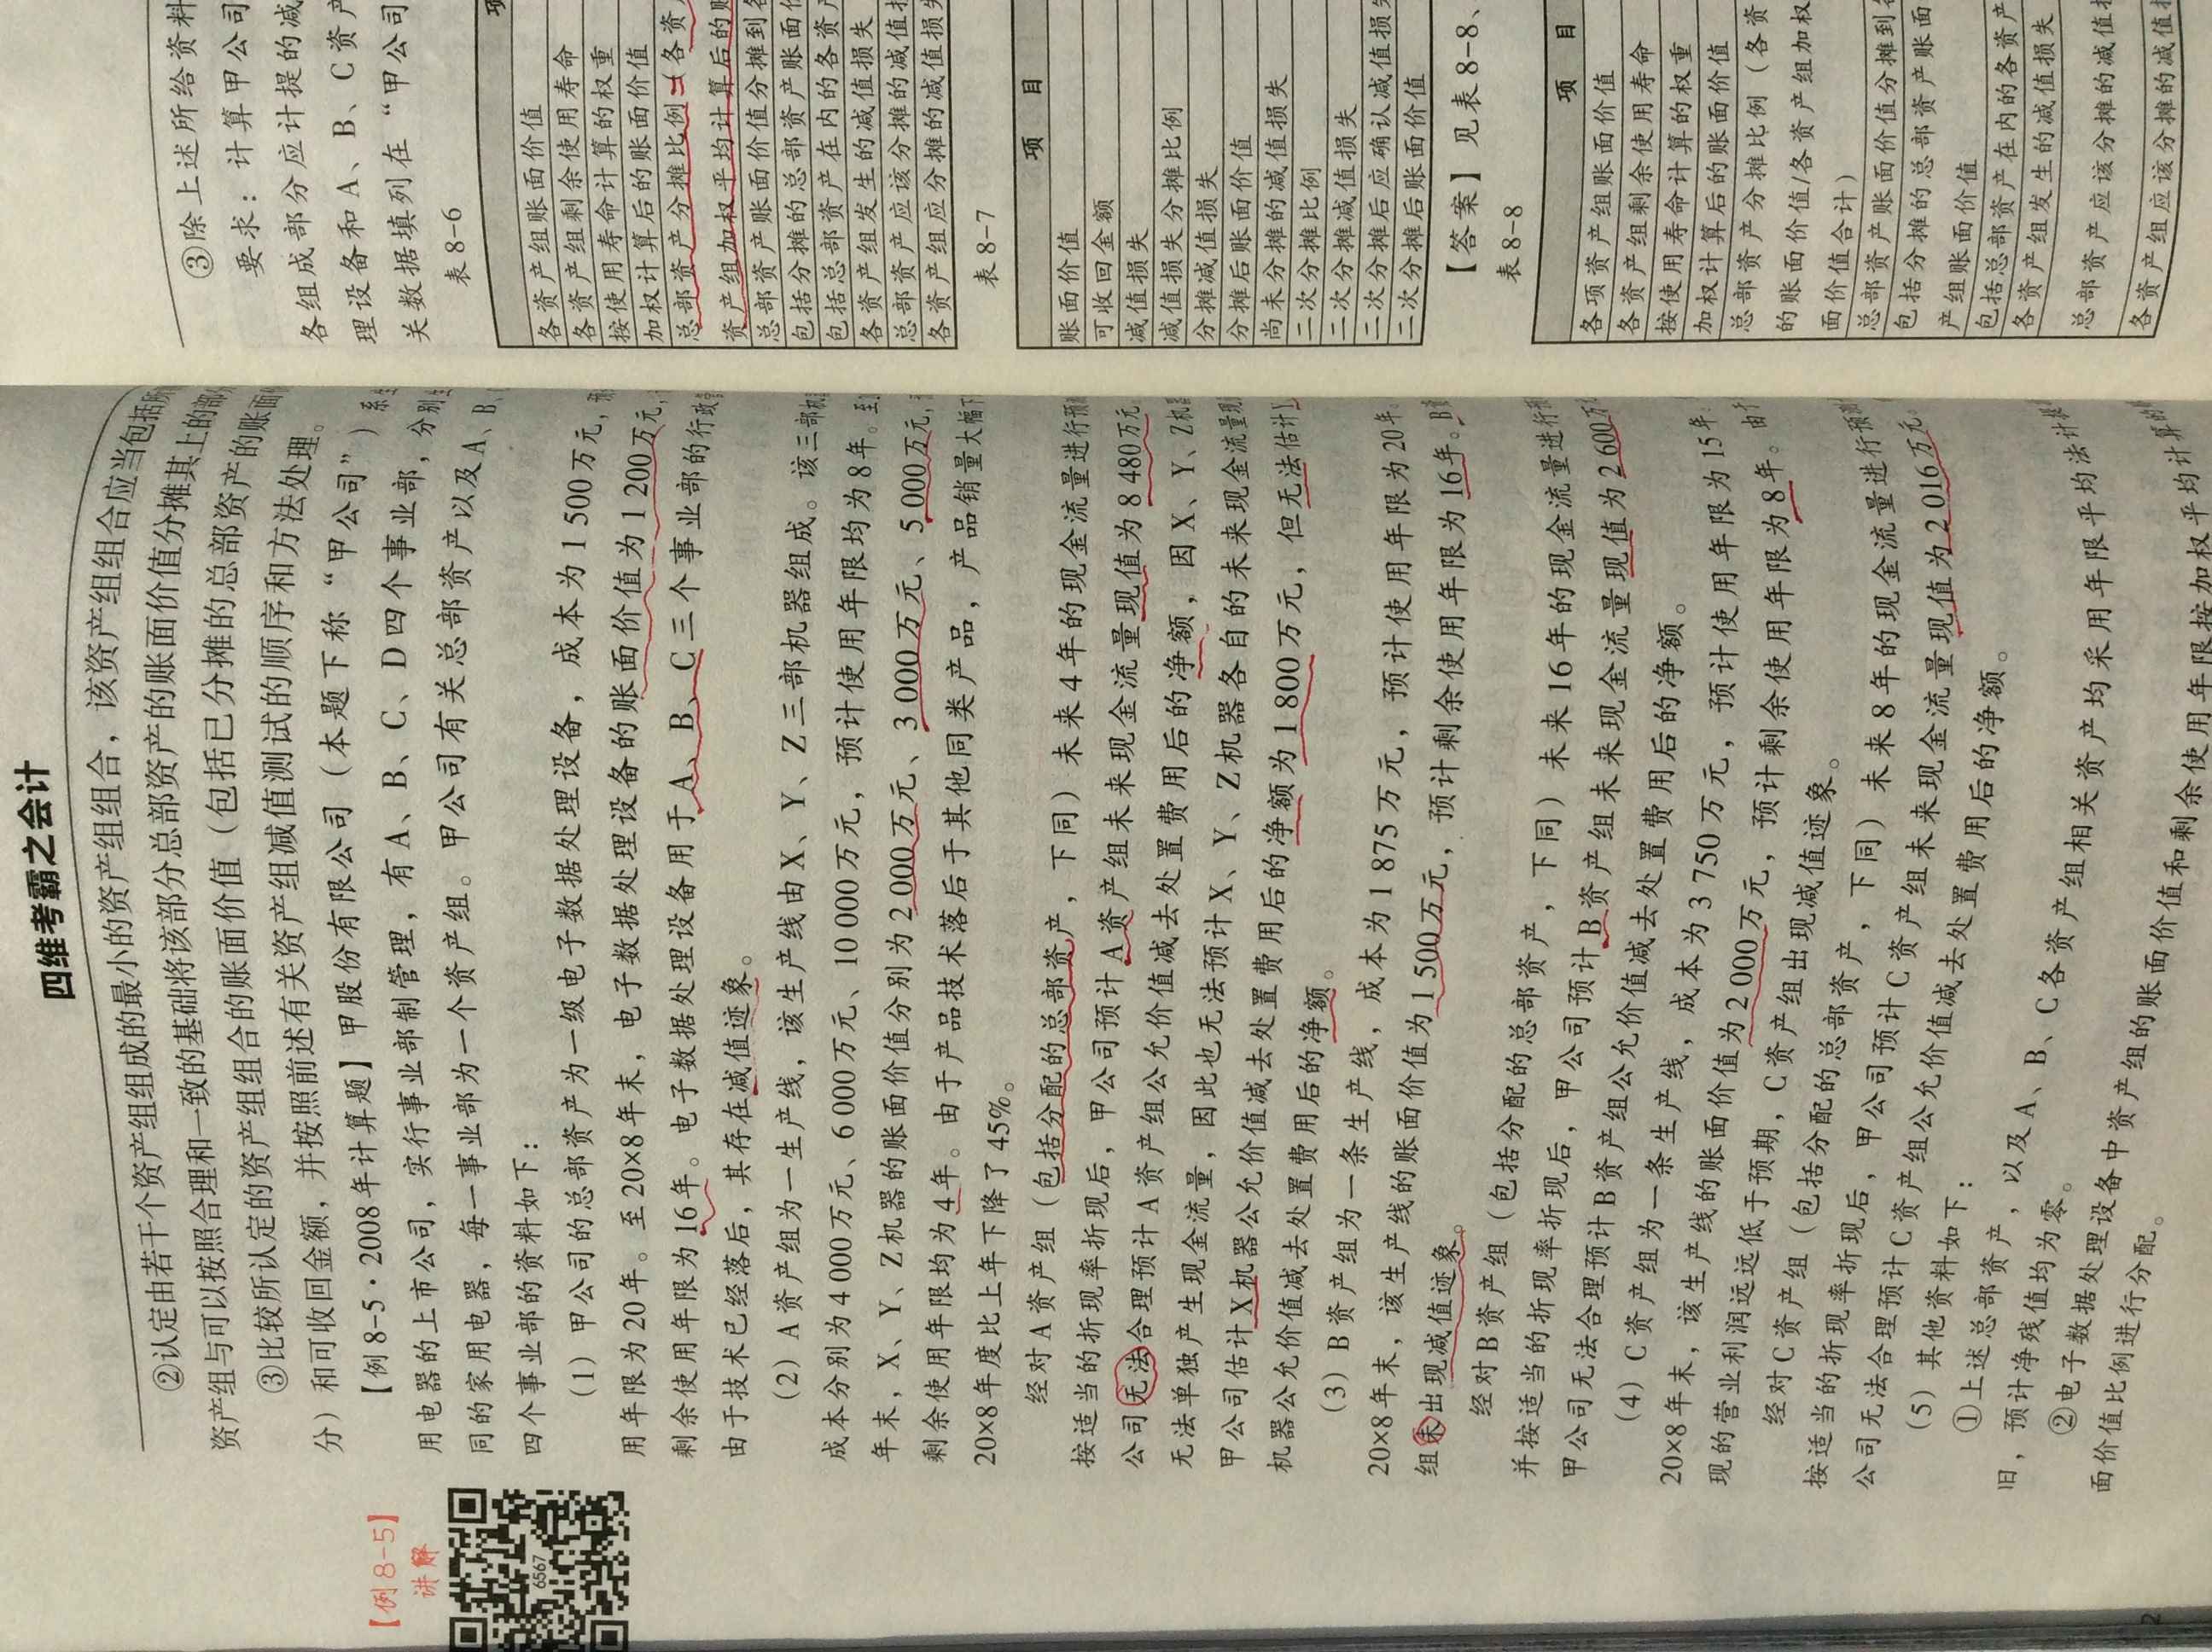 四维考霸之会计
②认定由若干个资产组组成的最小的资产组组合，该资产组组合应当包括所
资产组与可以按照合理和一致的基础将该部分总部资产的账面价值分摊其上的部
③比较所认定的资产组组合的账面价值（包括已分摊的总部资产的账面
分）和可收回金额，并按照前述有关资产组减值测试的顺序和方法处理。
【例8-5·2008年计算题】甲股份有限公司（本题下称“甲公司”）系
用电器的上市公司，实行事业部制管理，有A、B、C、D四个事业部，分别
同的家用电器，每一事业部为一个资产组。甲公司有关总部资产以及A、B、
四个事业部的资料如下：
（1）甲公司的总部资产为一级电子数据处理设备，成本为1 500万元，
用年限为20年。至20×8年末，电子数据处理设备的账面价值为1 200万元，
剩余使用年限为16年。电子数据处理设备用于A、B、C三个事业部的行政
由于技术已经落后，其存在减值迹象。
（2）A资产组为一生产线，该生产线由X、Y、Z三部机器组成。该三部机
成本分别为4 000万元、6 000万元、10 000万元，预计使用年限均为8年。至
年末，X、Y、Z机器的账面价值分别为2 000万元、3 000万元、5 000万元，
剩余使用年限均为4年。由于产品技术落后于其他同类产品，产品销量大幅下
20×8年度比上年下降了45%。
经对A资产组（包括分配的总部资产，下同）未来4年的现金流量进行预
按适当的折现率折现后，甲公司预计A资产组未来现金流量现值为8 480万元
公司无法合理预计A资产组公允价值减去处置费用后的净额，因X、Y、Z机
无法单独产生现金流量，因此也无法预计X、Y、Z机器各自的未来现金流量现
甲公司估计X机器公允价值减去处置费用后的净额为1 800万元，但无法估计
机器公允价值减去处置费用后的净额。
（3）B资产组为一条生产线，成本为1 875万元，预计使用年限为20年。
20×8年末，该生产线的账面价值为1 500万元，预计剩余使用年限为16年。B
组未出现减值迹象。
经对B资产组（包括分配的总部资产，下同）未来16年的现金流量进行
并按适当的折现率折现后，甲公司预计B资产组未来现金流量现值为2 600万
甲公司无法合理预计B资产组公允价值减去处置费用后的净额。
（4）C资产组为一条生产线，成本为3 750万元，预计使用年限为15年
20×8年末，该生产线的账面价值为2 000万元，预计剩余使用年限为8年。由
现的营业利润远远低于预期，C资产组出现减值迹象。
经对C资产组（包括分配的总部资产，下同）未来8年的现金流量进行预
按适当的折现率折现后，甲公司预计C资产组未来现金流量现值为2 016万元
公司无法合理预计C资产组公允价值减去处置费用后的净额。
（5）其他资料如下：
①上述总部资产，以及A、B、C各资产组相关资产均采用年限平均法计
旧，预计净残值均为零。
②电子数据处理设备中资产组的账面价值和剩余使用年限按加权平均计算
面价值比例进行分配。
【例8-5】
讲解
6567
2
③除上述所给资料
要求：计算甲公司
各组成部分应计提的减
理设备和A、B、C资产
关数据填列在“甲公司
表8-6
项
各资产组账面价值
各资产组剩余使用寿命
按使用寿命计算的权重
加权计算后的账面价值
总部资产分摊比例（各资
资产组加权平均计算后的账
总部资产账面价值分摊到各
包括分摊的总部资产账面价
包括总部资产在内的各资产
各资产组发生的减值损失
总部资产应该分摊的减值损
各资产组应分摊的减值损失
表8-7
项 目
账面价值
可收回金额
减值损失
减值损失分摊比例
分摊减值损失
分摊后账面价值
尚未分摊的减值损失
二次分摊比例
二次分摊减值损失
二次分摊后应确认减值损失
二次分摊后账面价值
【答案】见表8-8、
表8-8
项 目
各项资产组账面价值
各资产组剩余使用寿命
按使用寿命计算的权重
加权计算后的账面价值
总部资产分摊比例（各资
的账面价值/各资产组加权
面价值合计）
总部资产账面价值分摊到各
包括分摊的总部资产账面
产组账面价值
包括总部资产在内的各资产
各资产组发生的减值损失
总部资产应该分摊的减值
各资产组应该分摊的减值